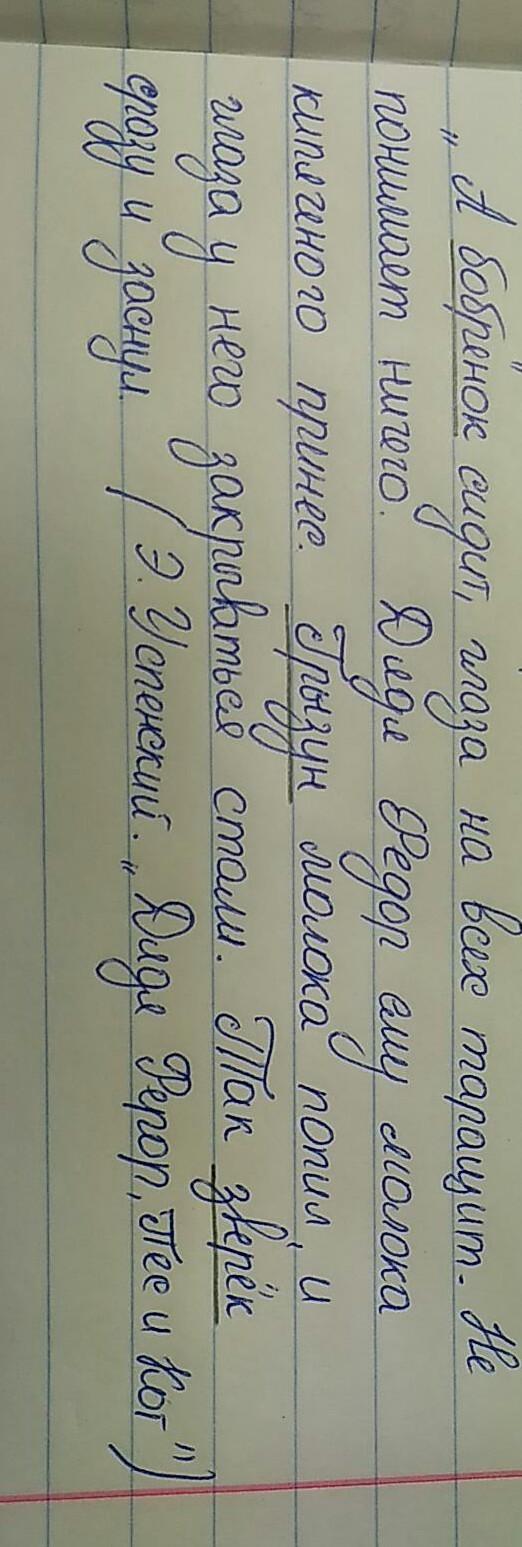 „А бобрёнок сидит, глаза на всех таращит. Не
понимает ничего. Дядя Федор ему молока
кипяченого принес. Грызун молока попил, и
глаза у него закрываться стали. Так зверёк
сразу и заснул. (Э. Успенский. „Дядя Ферор, Пес и Кот")